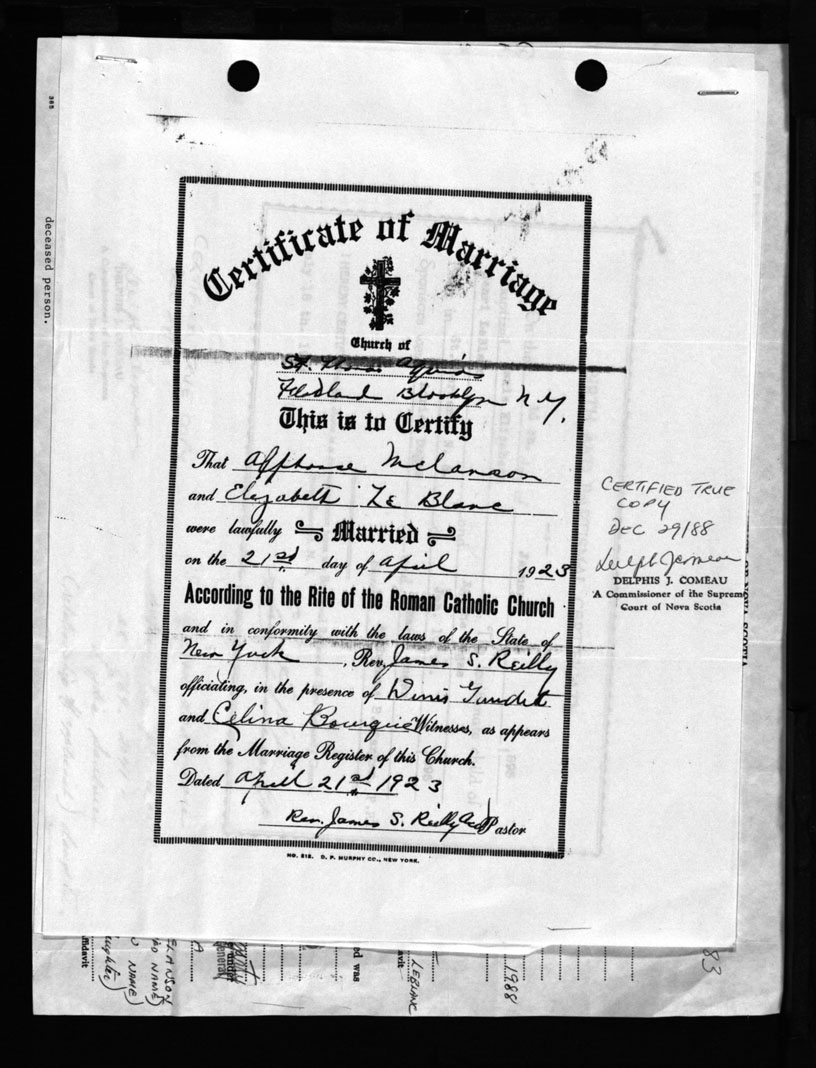 Certificate of Marriage
Church of
St. Thomas Aquinas
Flatland Brooklyn N.Y.
This is to Certify
That Alphonse Melanson
and Elizabeth Le Blanc
were lawfully Married
on the 21st day of April 1923
According to the Rite of the Roman Catholic Church
and in conformity with the laws of the State of
New York, Rev. James S. Reilly
officiating, in the presence of
and Celina Bourque Witnesses, as appears
from the Marriage Register of this Church.
Dated April 21st 1923
Rev. James S. Reilly Pastor
NO. 212. D. P. MURPHY CO., NEW YORK.
CERTIFIED TRUE
COPY
DEC 29/88
Delph J Comeau
DELPHIS J. COMEAU
A Commissioner of the Supreme
Court of Nova Scotia
385
deceased person.
OF NOVA SCOTIA
ELANSON
NAME)
NAME)
ughter)
ffidavit
under
general
ed was
avit
LEBLANC
1988
83